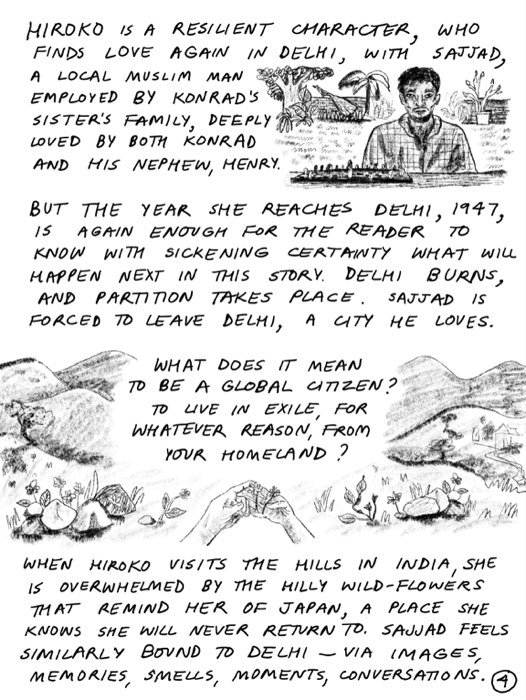 HIROKO IS A RESILIENT CHARACTER, WHO
FINDS LOVE AGAIN IN DELHI, WITH SAJJAD,
A LOCAL MUSLIM MAN
EMPLOYED BY KONRAD'S
SISTER'S FAMILY, DEEPLY
LOVED BY BOTH KONRAD
AND HIS NEPHEW, HENRY.
BUT THE YEAR SHE REACHES DELHI, 1947,
IS AGAIN ENOUGH FOR THE READER TO
KNOW WITH SICKENING CERTAINTY WHAT WILL
HAPPEN NEXT IN THIS STORY. DELHI BURNS,
AND PARTITION TAKES PLACE. SAJJAD IS
FORCED TO LEAVE DELHI, A CITY HE LOVES.
WHAT DOES IT MEAN
TO BE A GLOBAL CITIZEN?
TO LIVE IN EXILE, FOR
WHATEVER REASON, FROM
YOUR HOMELAND?
WHEN HIROKO VISITS THE HILLS IN INDIA, SHE
IS OVERWHELMED BY THE HILLY WILD-FLOWERS
THAT REMIND HER OF JAPAN, A PLACE SHE
KNOWS SHE WILL NEVER RETURN TO. SAJJAD FEELS
SIMILARLY BOUND TO DELHI – VIA IMAGES,
MEMORIES, SMELLS, MOMENTS, CONVERSATIONS. 4